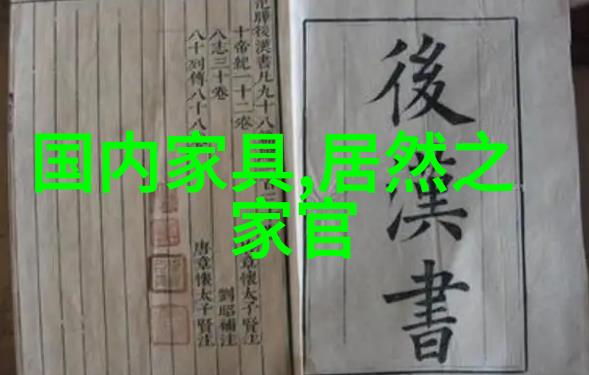 国内家具,居然之
家官
後漢書
後漢書凡九十八
十帝紀一十二卷 章懷太子賢注
八志三十卷 劉昭補注
八十列傳八十八 唐章懷太子賢注